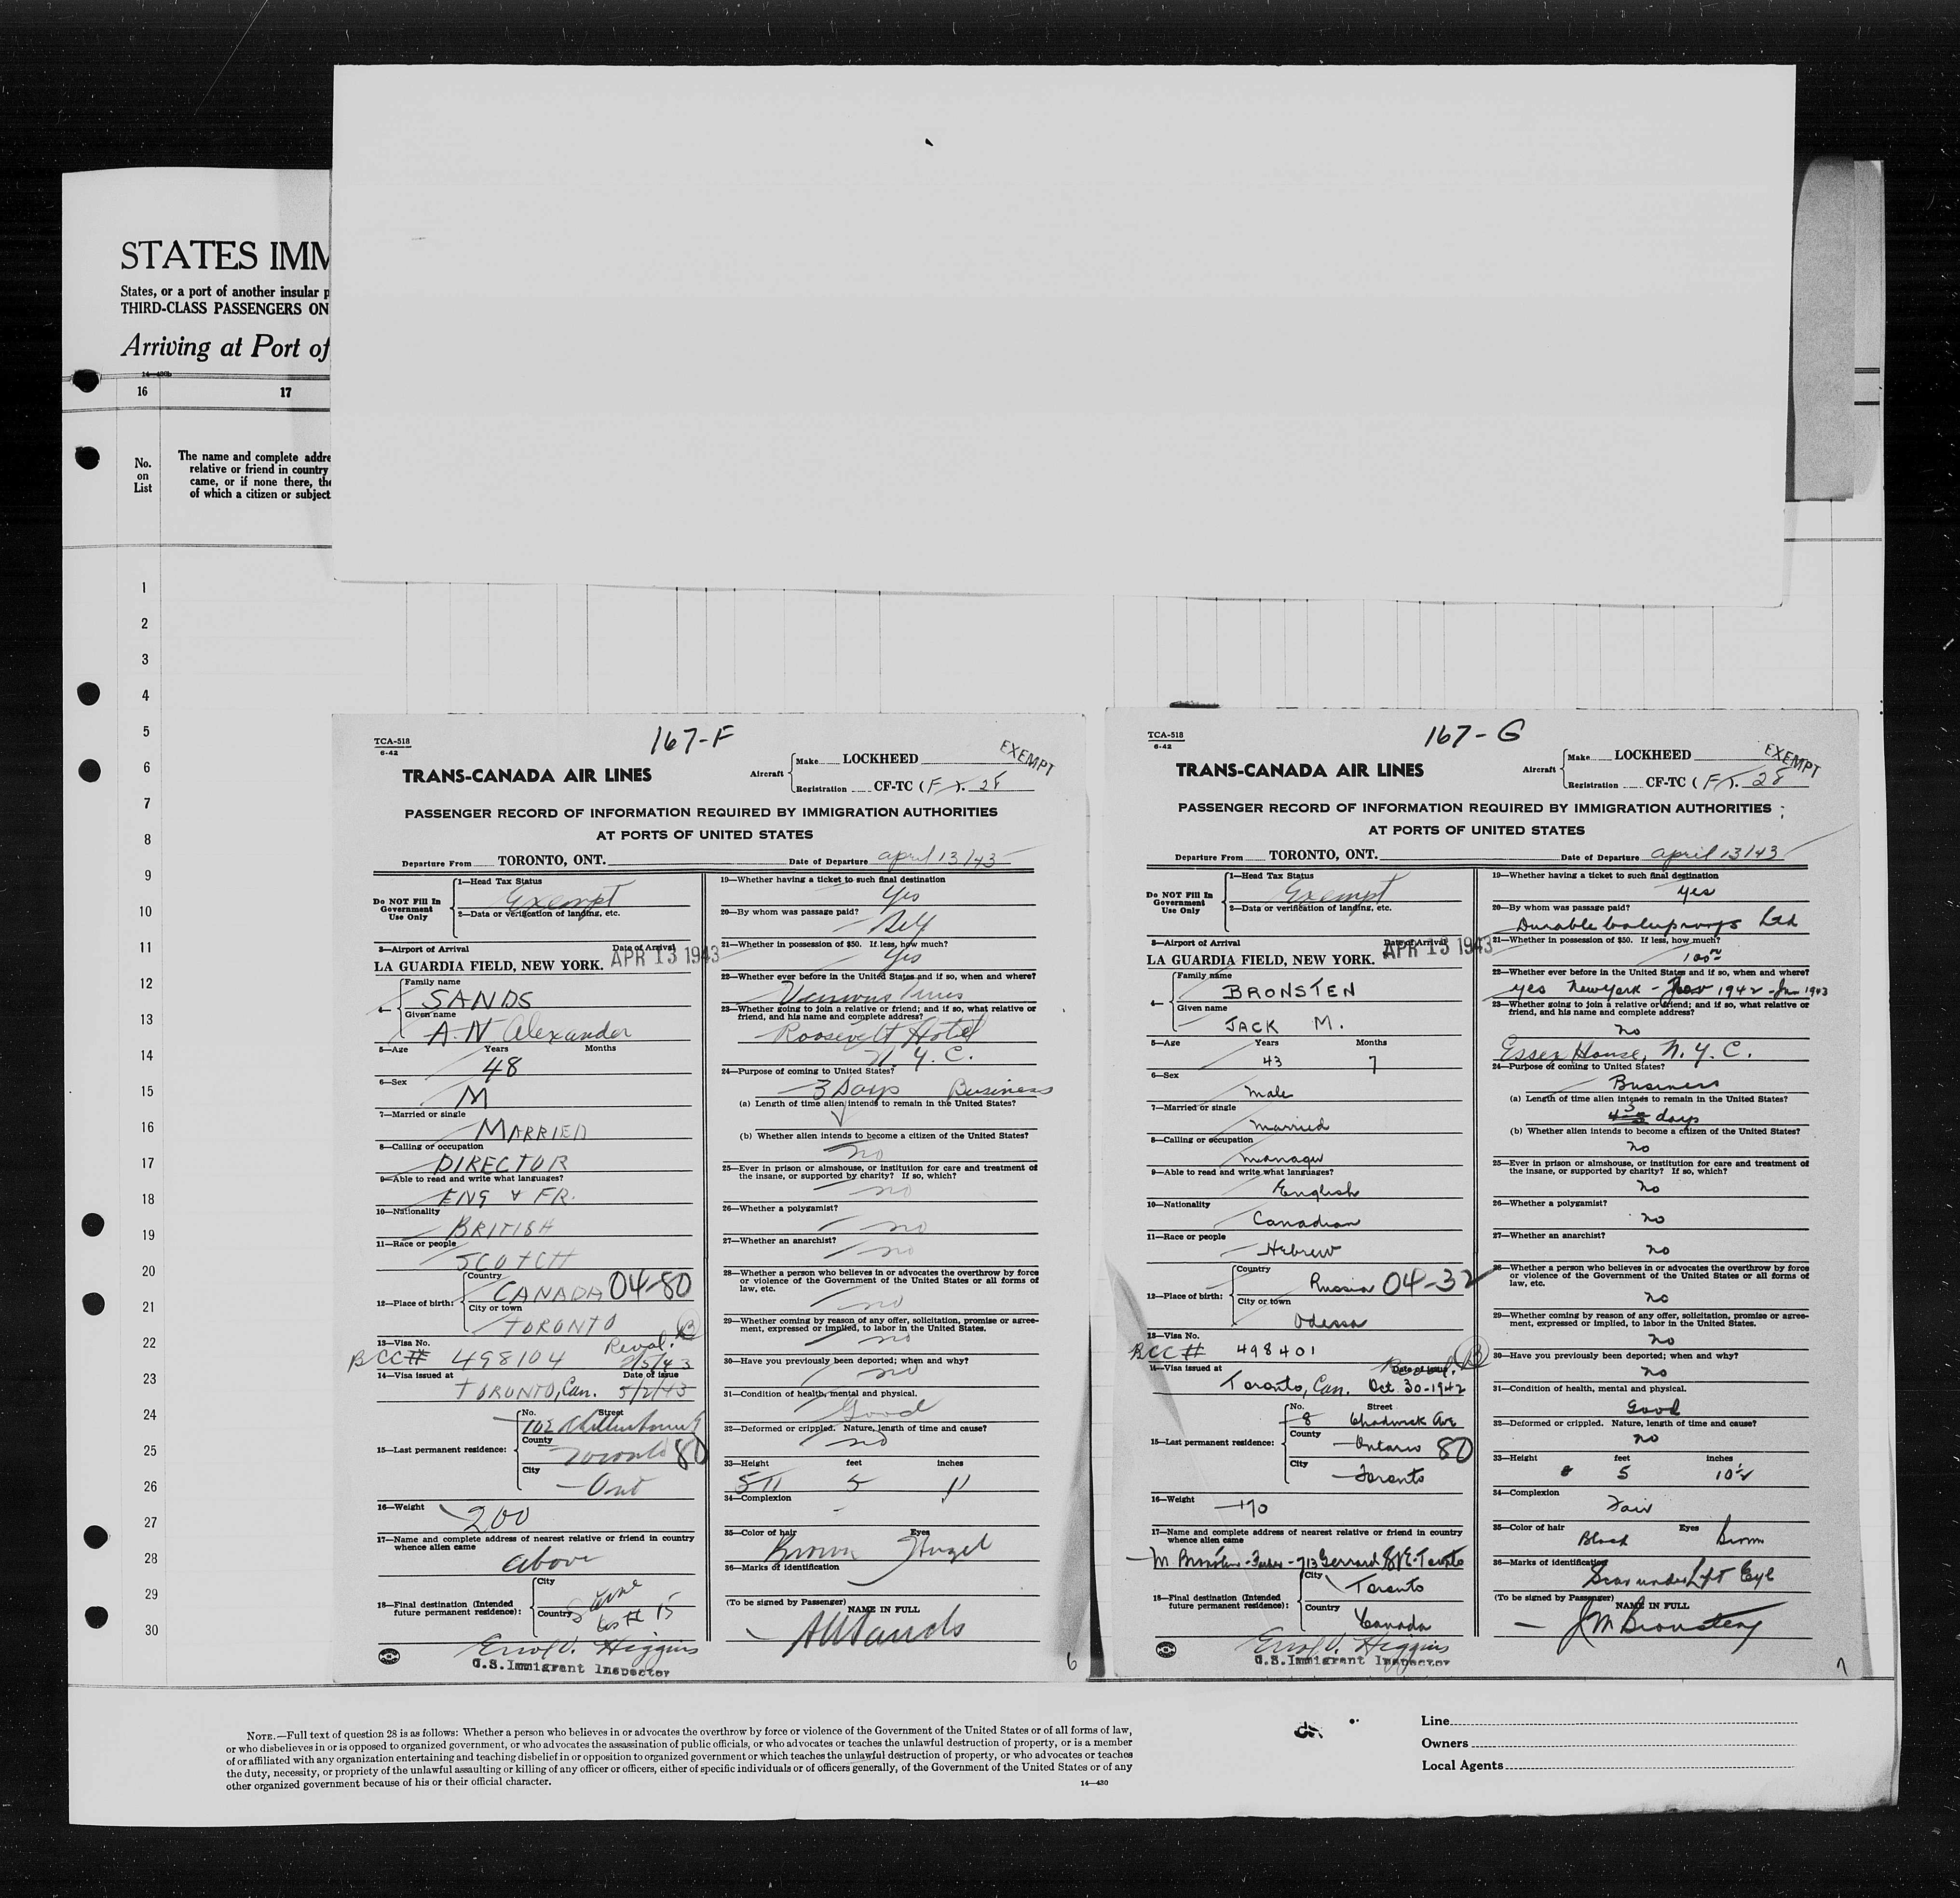 STATES IMM
States, or a port of another insular p
THIRD-CLASS PASSENGERS ON
Arriving at Port of
14—430b
16 17
No. on List
The name and complete addre
relative or friend in country
came, or if none there, the
of which a citizen or subject
1
2
3
4
5
6
7
8
9
10
11
12
13
14
15
16
17
18
19
20
21
22
23
24
25
26
27
28
29
30
TCA-518
6-42
167-F
EXEMPT
TRANS-CANADA AIR LINES
Aircraft
Make LOCKHEED
Registration CF-TC (F 28
PASSENGER RECORD OF INFORMATION REQUIRED BY IMMIGRATION AUTHORITIES
AT PORTS OF UNITED STATES
Departure From TORONTO, ONT. Date of Departure april 13/43
Do NOT Fill In
Government
Use Only
1—Head Tax Status
Exempt
2—Data or verification of landing, etc.
3—Airport of Arrival Date of Arrival
LA GUARDIA FIELD, NEW YORK. APR 13 1943
4— Family name
SANDS
Given name
A.N Alexander
5—Age Years Months
48
6—Sex
M
7—Married or single
MARRIED
8—Calling or occupation
DIRECTOR
9—Able to read and write what languages?
ENG & FR.
10—Nationality
BRITISH
11—Race or people
SCOTCH
12—Place of birth:
Country
CANADA 04-80
City or town
TORONTO
13—Visa No. Reval. B
BCC# 498104 2/5/43
14—Visa issued at Date of issue
TORONTO, Can. 5/2/43
15—Last permanent residence:
No. Street
102
County
Toronto 80
City
Ont
16—Weight
200
17—Name and complete address of nearest relative or friend in country
whence alien came
above
18—Final destination (Intended
future permanent residence):
City
Same
Country
15
Errol V. Higgins
U.S. Immigrant Inspector
19—Whether having a ticket to such final destination
Yes
20—By whom was passage paid?
Self
21—Whether in possession of $50. If less, how much?
Yes
22—Whether ever before in the United States and if so, when and where?
Various Times
23—Whether going to join a relative or friend; and if so, what relative or
friend, and his name and complete address?
Roosevelt Hotel
N.Y.C.
24—Purpose of coming to United States?
3 Days Business
(a) Length of time alien intends to remain in the United States?
(b) Whether alien intends to become a citizen of the United States?
no
25—Ever in prison or almshouse, or institution for care and treatment of
the insane, or supported by charity? If so, which?
no
26—Whether a polygamist?
no
27—Whether an anarchist?
no
28—Whether a person who believes in or advocates the overthrow by force
or violence of the Government of the United States or all forms of
law, etc.
no
29—Whether coming by reason of any offer, solicitation, promise or agree-
ment, expressed or implied, to labor in the United States.
no
30—Have you previously been deported; when and why?
no
31—Condition of health, mental and physical.
Good
32—Deformed or crippled. Nature, length of time and cause?
no
33—Height feet inches
5 11 5 11
34—Complexion
35—Color of hair Eyes
Brown Hazel
36—Marks of identification
(To be signed by Passenger) NAME IN FULL
ANSands
6
TCA-518
6-42
167-G
EXEMPT
TRANS-CANADA AIR LINES
Aircraft
Make LOCKHEED
Registration CF-TC (F 28
PASSENGER RECORD OF INFORMATION REQUIRED BY IMMIGRATION AUTHORITIES
AT PORTS OF UNITED STATES
Departure From TORONTO, ONT. Date of Departure april 13/43
Do NOT Fill In
Government
Use Only
1—Head Tax Status
Exempt
2—Data or verification of landing, etc.
3—Airport of Arrival Date of Arrival
LA GUARDIA FIELD, NEW YORK. APR 13 1943
4— Family name
BRONSTEN
Given name
JACK M.
5—Age Years Months
43 7
6—Sex
Male
7—Married or single
Married
8—Calling or occupation
Manager
9—Able to read and write what languages?
English
10—Nationality
Canadian
11—Race or people
Hebrew
12—Place of birth:
Country
Russia 04-32
City or town
Odessa
13—Visa No.
BCC # 498401 B
14—Visa issued at Date of issue
Toronto, Can. Oct. 30-1942
15—Last permanent residence:
No. Street
8 Chadwick Ave
County
Ontario 80
City
Toronto
16—Weight
170
17—Name and complete address of nearest relative or friend in country
whence alien came
M Bronsten - Father - 713 Gerrard St E. Toronto
18—Final destination (Intended
future permanent residence):
City
Toronto
Country
Canada
Errol V. Higgins
U.S. Immigrant Inspector
19—Whether having a ticket to such final destination
yes
20—By whom was passage paid?
Durable Waterproofs Ltd
21—Whether in possession of $50. If less, how much?
100
22—Whether ever before in the United States and if so, when and where?
yes New York - 1942 - Jan 1943
23—Whether going to join a relative or friend; and if so, what relative or
friend, and his name and complete address?
no
Essex House, N.Y.C.
24—Purpose of coming to United States?
Business
(a) Length of time alien intends to remain in the United States?
days
(b) Whether alien intends to become a citizen of the United States?
no
25—Ever in prison or almshouse, or institution for care and treatment of
the insane, or supported by charity? If so, which?
no
26—Whether a polygamist?
no
27—Whether an anarchist?
no
28—Whether a person who believes in or advocates the overthrow by force
or violence of the Government of the United States or all forms of
law, etc.
no
29—Whether coming by reason of any offer, solicitation, promise or agree-
ment, expressed or implied, to labor in the United States.
no
30—Have you previously been deported; when and why?
no
31—Condition of health, mental and physical.
Good
32—Deformed or crippled. Nature, length of time and cause?
no
33—Height feet inches
5 10½
34—Complexion
Fair
35—Color of hair Eyes
Black Brown
36—Marks of identification
Scar under Left Eye
(To be signed by Passenger) NAME IN FULL
JM Bronsten
7
NOTE.—Full text of question 28 is as follows: Whether a person who believes in or advocates the overthrow by force or violence of the Government of the United States or of all forms of law,
or who disbelieves in or is opposed to organized government, or who advocates the assassination of public officials, or who advocates or teaches the unlawful destruction of property, or is a member
of or affiliated with any organization entertaining and teaching disbelief in or opposition to organized government or which teaches the unlawful destruction of property, or who advocates or teaches
the duty, necessity, or propriety of the unlawful assaulting or killing of any officer or officers, either of specific individuals or of officers generally, of the Government of the United States or of any
other organized government because of his or their official character.
14—430
Line
Owners
Local Agents